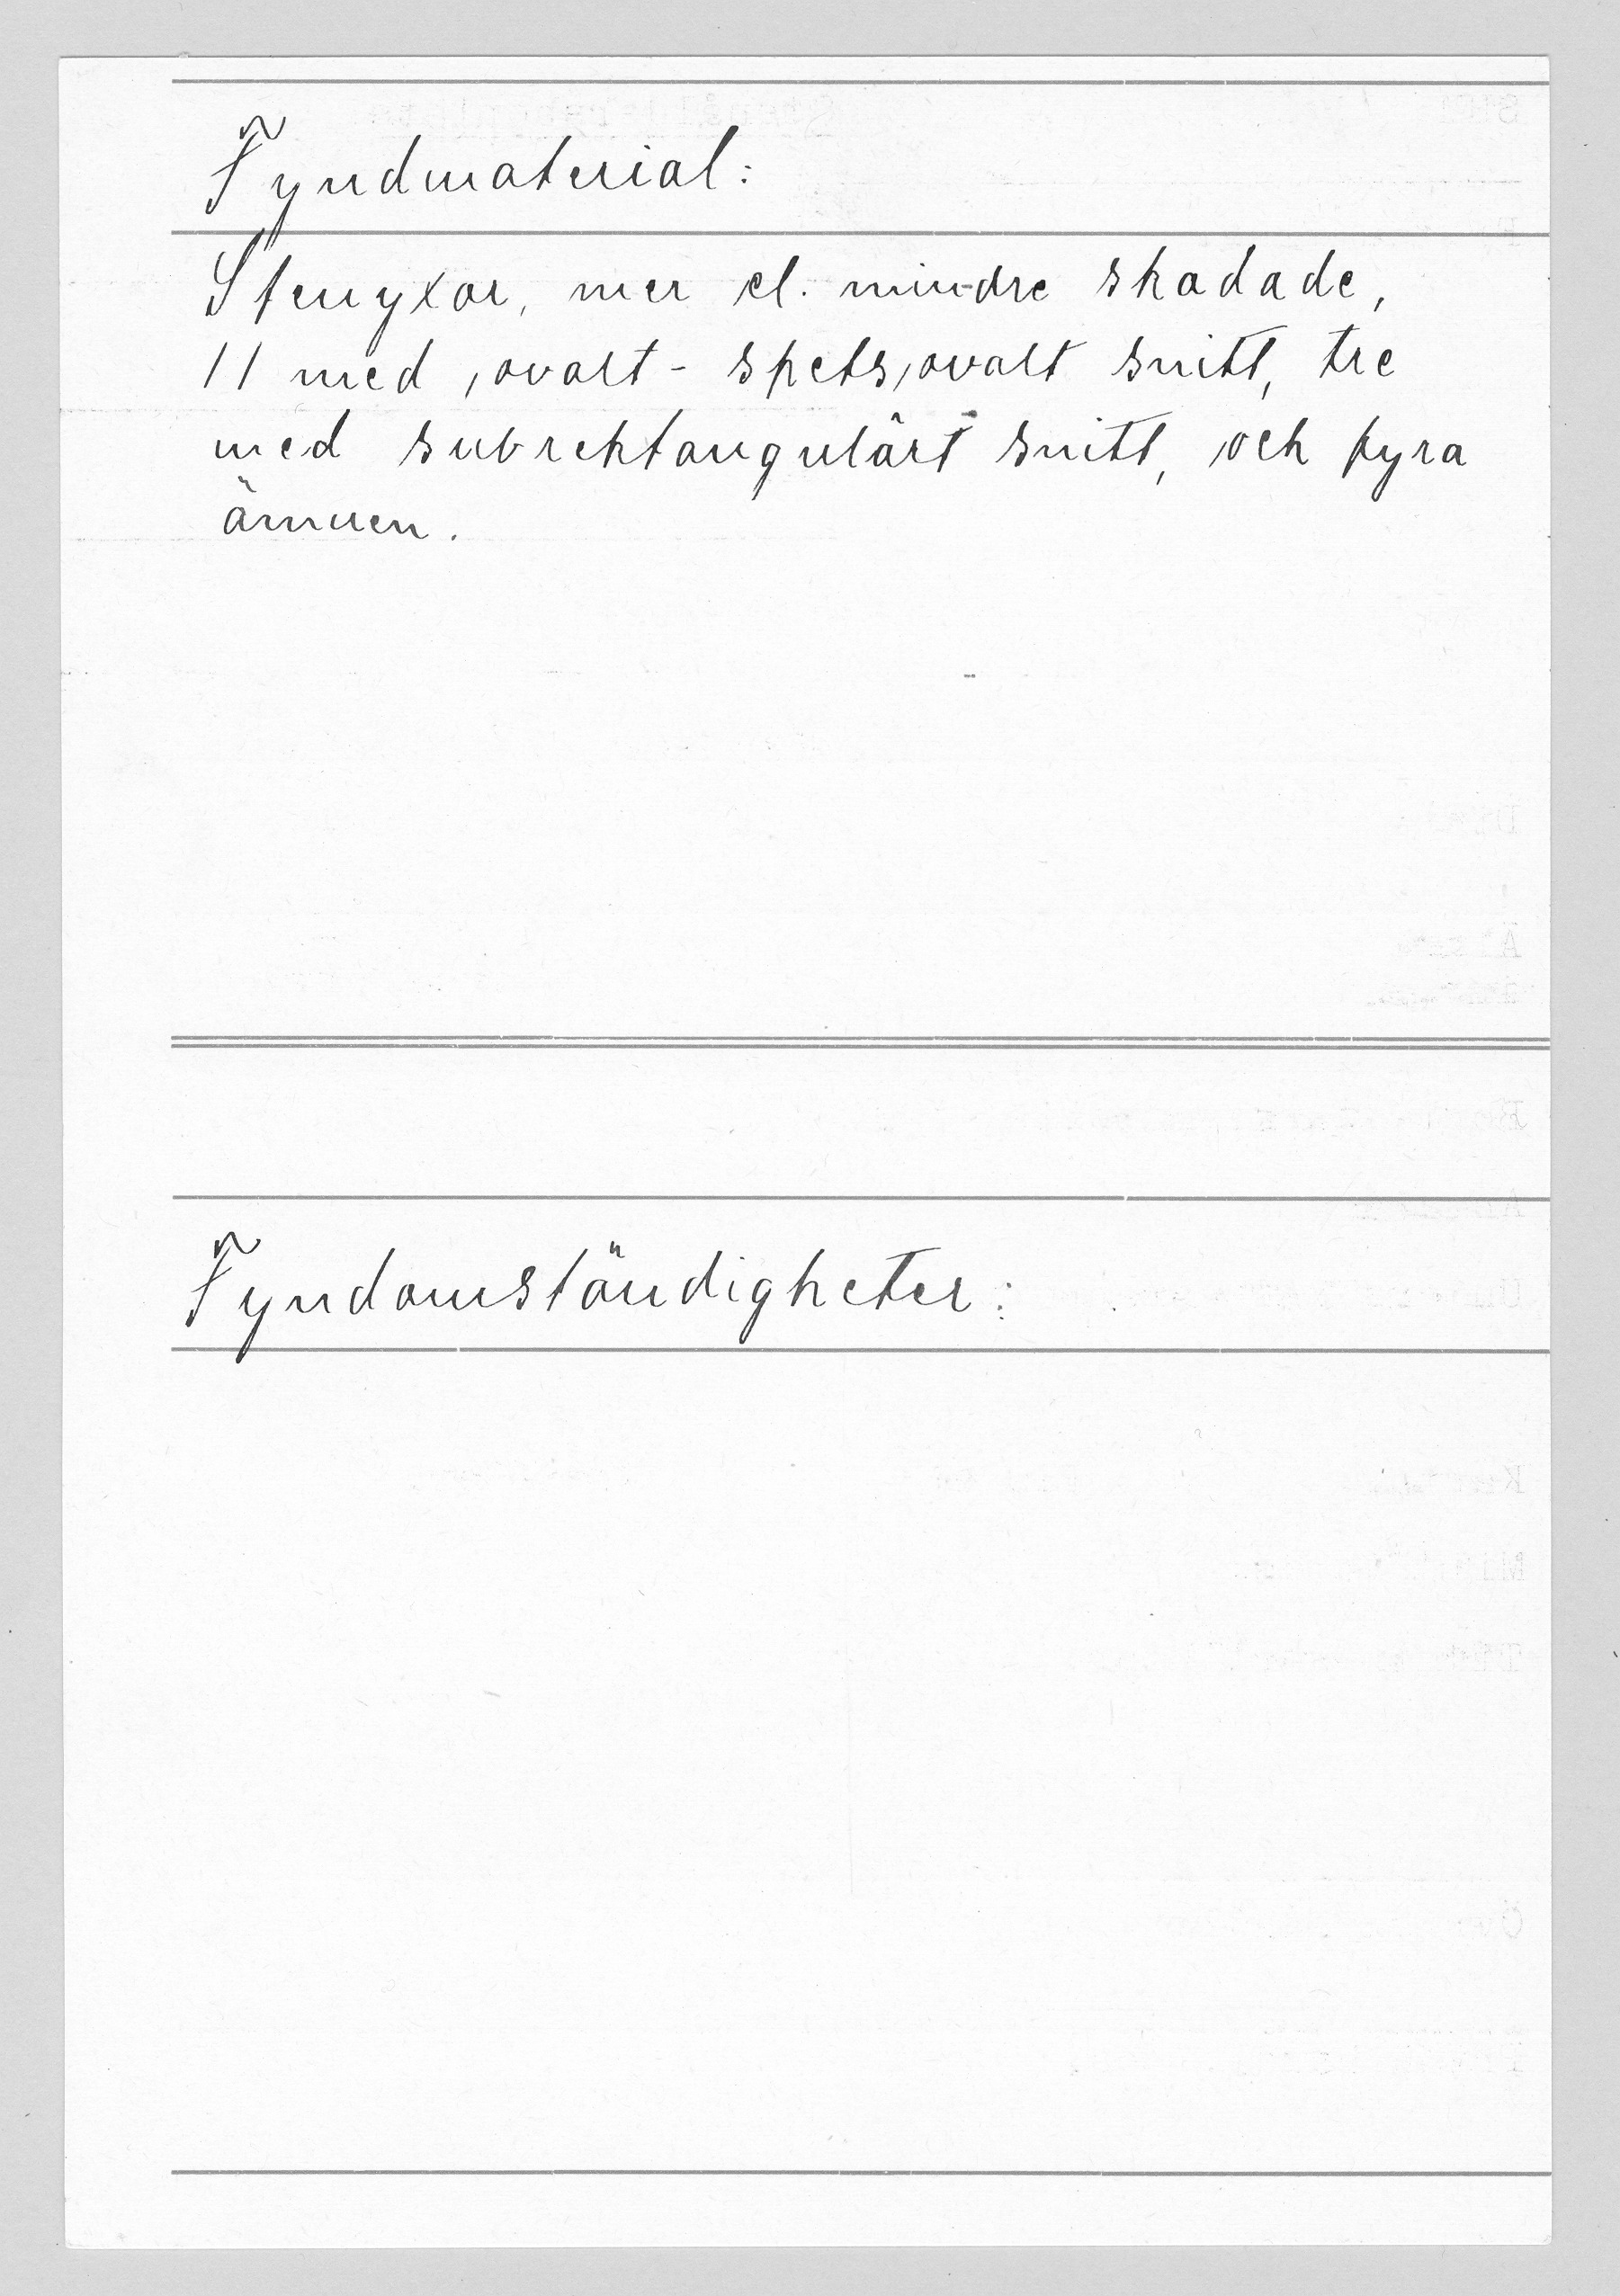 Fyndmaterial:
Stenyxor, mer el. mindre skadade,
11 med ovalt - spetsovalt snitt, tre
med subrektangulärt snitt, och fyra
ämnen.
Fyndomständigheter: